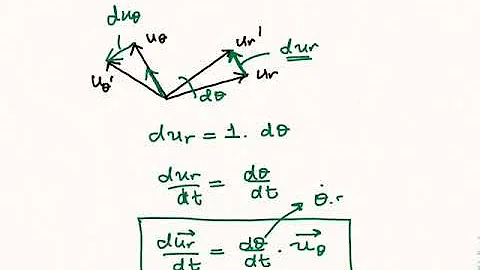 duθ
uθ
uθ'
ur'
dur
ur
dθ
dur = 1. dθ
dur/dt = dθ/dt
θ̇.r
du⃗r/dt = dθ/dt · u⃗θ